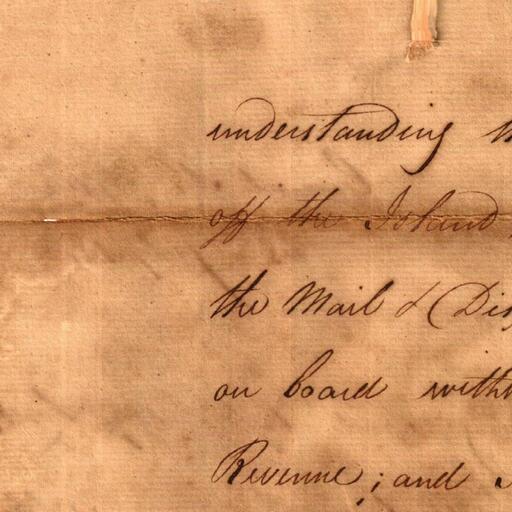 understanding
off the Island
the Mail & Dis
on board with
Revenue; and